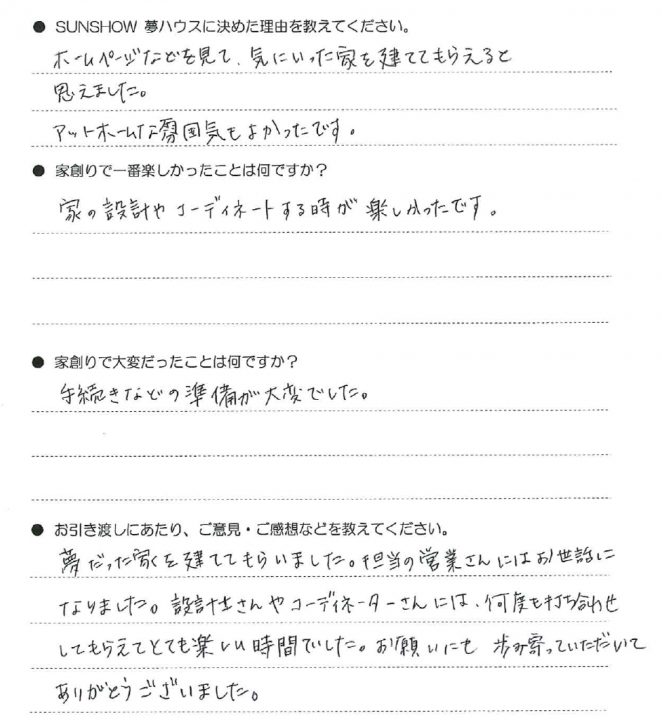 ● SUNSHOW 夢ハウスに決めた理由を教えてください。
ホームページなどを見て、気にいった家を建ててもらえると
思えました。
アットホームな雰囲気もよかったです。
● 家創りで一番楽しかったことは何ですか？
家の設計やコーディネートする時が楽しかったです。
● 家創りで大変だったことは何ですか？
手続きなどの準備が大変でした。
● お引き渡しにあたり、ご意見・ご感想などを教えてください。
夢だった家を建ててもらいました。担当の営業さんにはお世話に
なりました。設計士さんやコーディネーターさんには、何度も打ち合わせ
してもらえてとても楽しい時間でした。お願いにも歩み寄っていただいて
ありがとうございました。